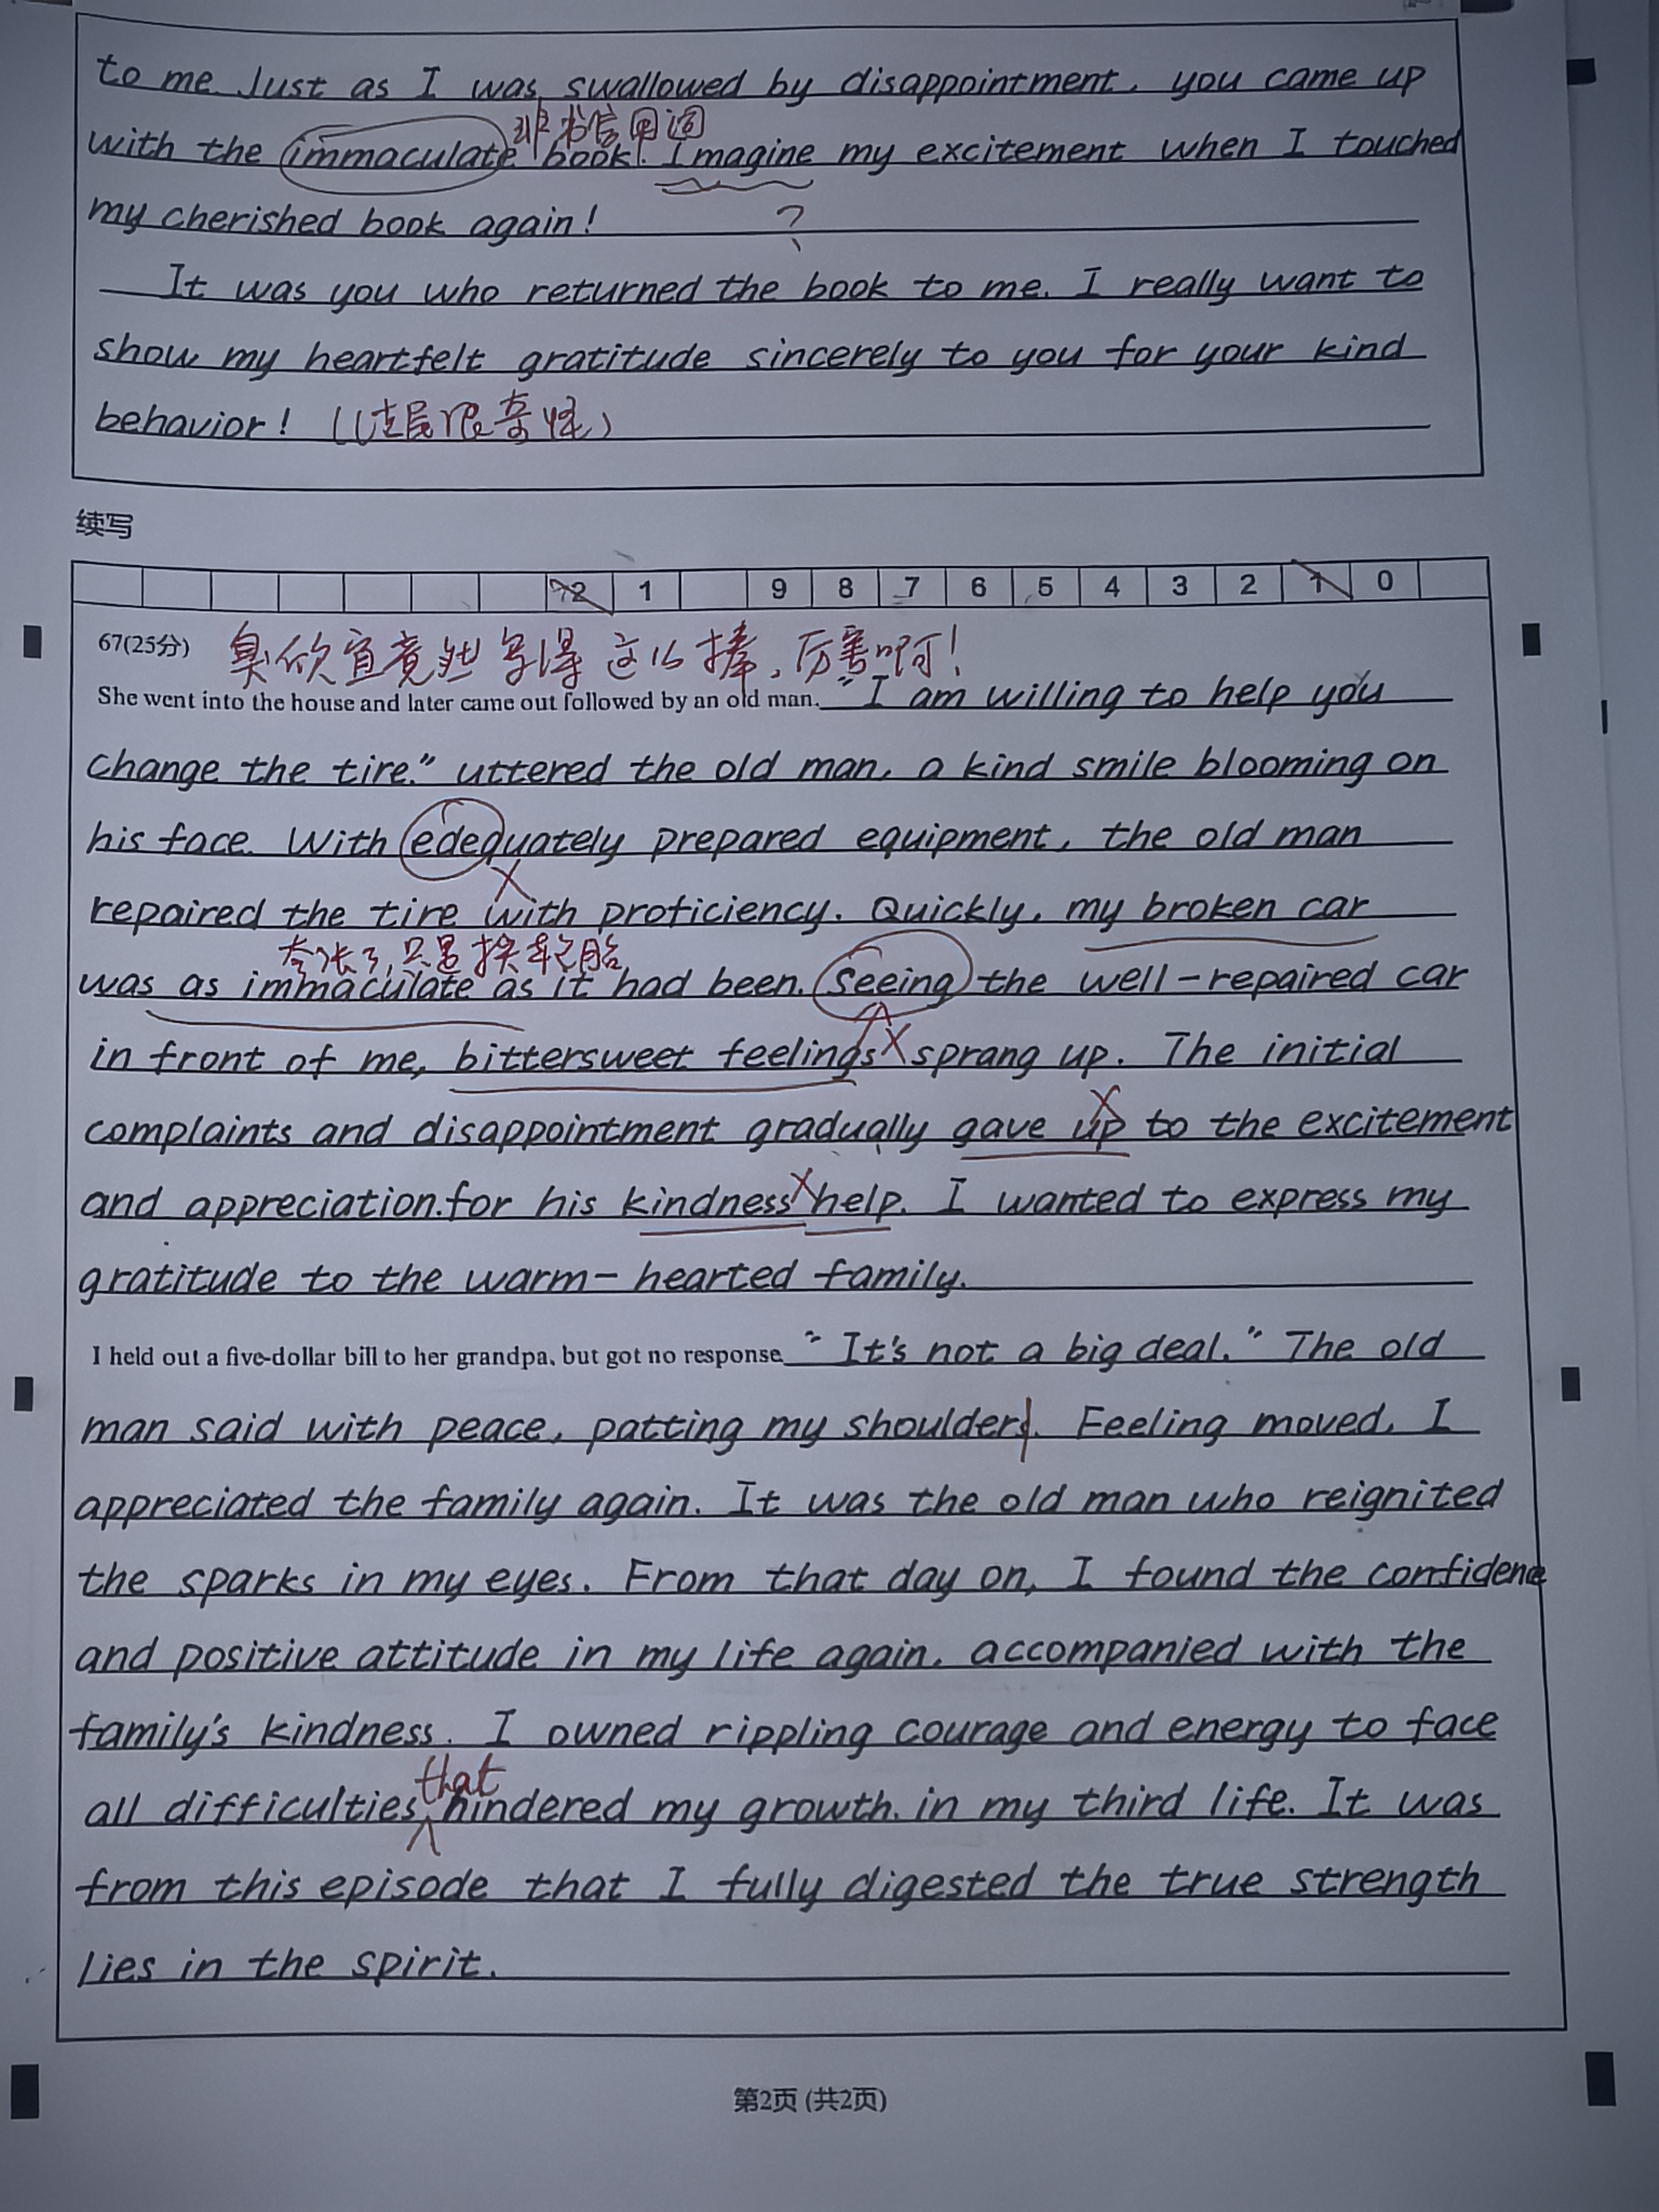 to me. Just as I was swallowed by disappointment, you came up
非书信用词
with the immaculate book. Imagine my excitement when I touched
my cherished book again!
?
It was you who returned the book to me. I really want to
show my heartfelt gratitude sincerely to you for your kind
behavior! (结尾很奇怪)
续写
2 1 9 8 7 6 5 4 3 2 1 0
67(25分) 臭欣宜竟然写得这么棒,厉害啊!
She went into the house and later came out followed by an old man. "I am willing to help you
change the tire." uttered the old man, a kind smile blooming on
his face. With edequately prepared equipment, the old man
repaired the tire with proficiency. Quickly, my broken car
夸张了,只是换轮胎
was as immaculate as it had been. Seeing the well-repaired car
in front of me, bittersweet feelings sprang up. The initial
complaints and disappointment gradually gave up to the excitement
and appreciation.for his kindness help. I wanted to express my
gratitude to the warm-hearted family.
I held out a five-dollar bill to her grandpa, but got no response. "It's not a big deal." The old
man said with peace, patting my shoulder. Feeling moved, I
appreciated the family again. It was the old man who reignited
the sparks in my eyes. From that day on, I found the confidence
and positive attitude in my life again, accompanied with the
family's kindness. I owned rippling courage and energy to face
that
all difficulties hindered my growth. in my third life. It was
from this episode that I fully digested the true strength
lies in the spirit.
第2页 (共2页)